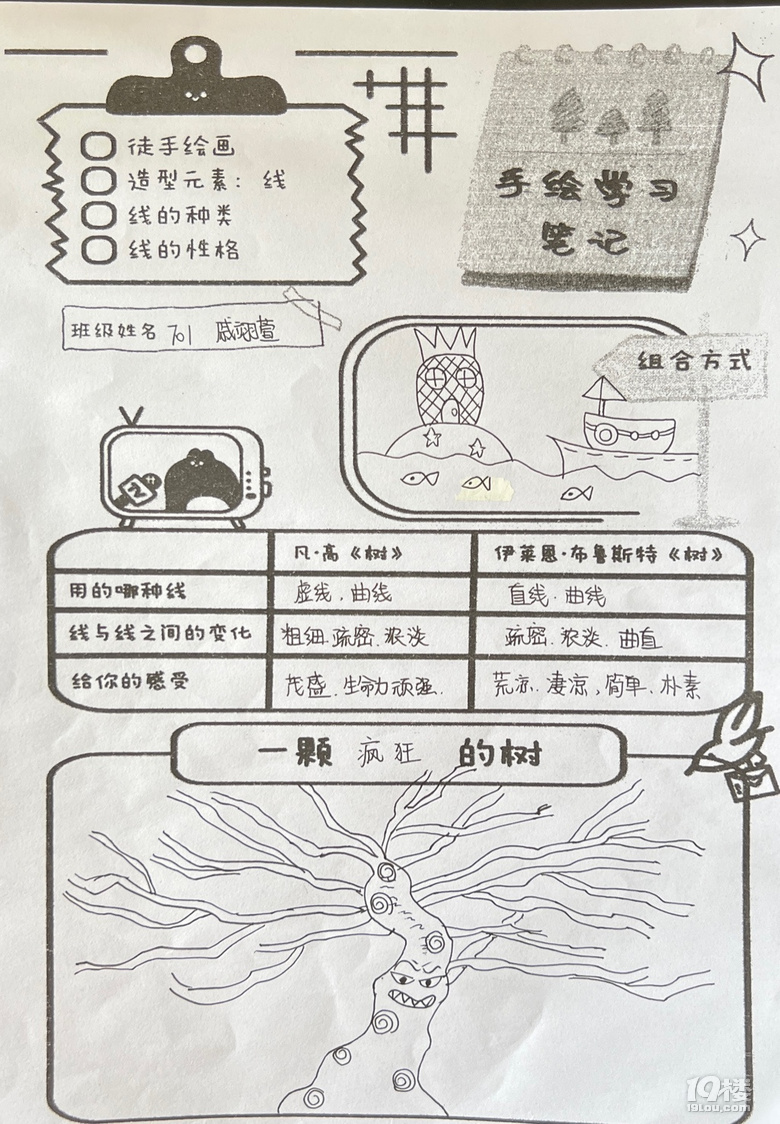 徒手绘画
造型元素：线
线的种类
线的性格
手绘学习
笔记
班级姓名 701 戚翊萱
组合方式
凡·高《树》 伊莱恩·布鲁斯特《树》
用的哪种线 虚线、曲线 直线、曲线
线与线之间的变化 粗细、疏密、浓淡 疏密、浓淡、曲直
给你的感受 茂盛、生命力顽强、 荒凉、凄凉、简单、朴素
一颗 疯狂 的树
19楼
19lou.com